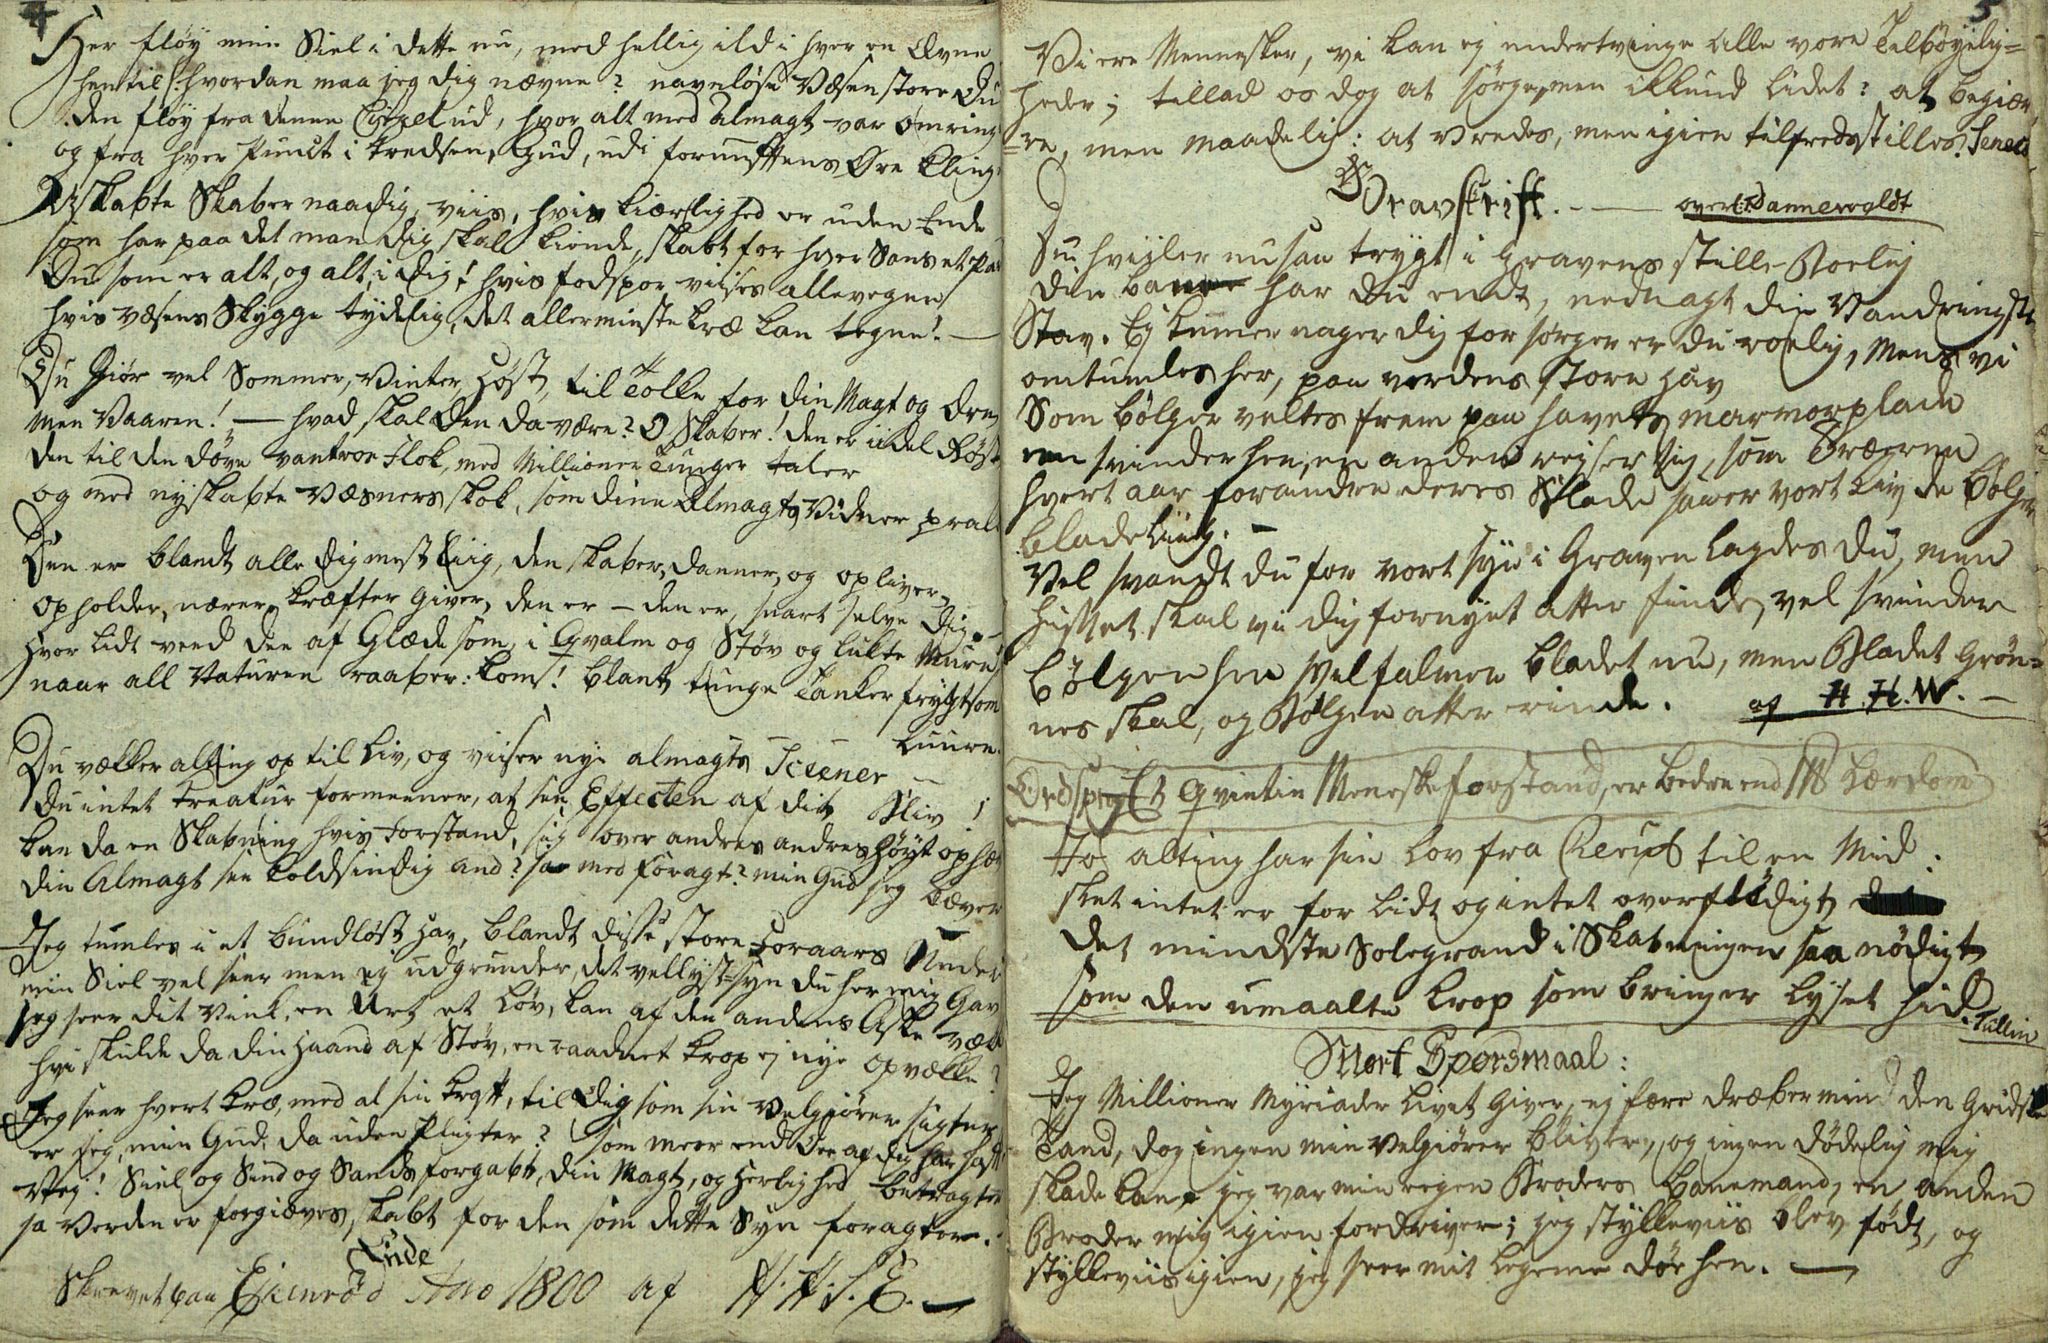 4
Her fløy min Siel i dette nu, med hellig ild i hver en Evne
hen til: hvordan maa jeg dig nævne? navnløse Væsen store Du
den fløy fra denne Cirkel ud, hvor alt med Almagt var omring
og fra hver Punct i Kredsen, Gud, udi fornuftens Øre kling
Uskabte Skaber naadig, viis, hvis Kiærlighed er uden Ende
som har paa det man dig skal kiende, skabt for hver Sans et Pa
Du som er alt, og alt, i dig! hvis fodspor viises allevegne
hvis Væsens Skygge tydelig, det allermindste Kræ kan tegne! —
Du Giør vel Sommer, Vinter, Høst, til Tolke for din Magt og Ære
men Vaaren! — hvad skal den da være? O Skaber! den er iidel Røst
den til den døve vantroe Flok, med Millioner Tunger taler
og med nyskabte Væsners skok, som dine Almagts Vidner praler
Den er blandt alle dig mest Liig, den skaber, danner, og opliver,
opholder, nærer, Kræfter Giver, den er — den er, snart selve dig. —
Hvor lidt veed den af Glæde som, i Qvalm og Støv og lukte Mure,
naar all Naturen raaber: kom! blant tunge Tanker frygtsom
Luure.
Du vækker alting op til Liv, og viiser nye almagts Scener —
Du intet Creatur formeener, at see Effecten af dit Bliv!
kan da en Skabning hvis Forstand, sig over andres andres høyt ophæ
din Almagt see koldsindig and? ja med Foragt? min Gud jeg bæver
Jeg tumles i et bundløst Hav, blandt disse store Foraars Under
min Siel vel seer men ej udgrunder, det vellyst-syn du her mig Gav
jeg seer dit Vink, en Urt et Løv, kan af den andens Aske væk
hvi skulde da din Haand af Støv, en raadnet krop ej nye opvække?
Jeg seer hvert Kræ, med al sin Kraft, til dig som sin Velgiører sigter
er jeg, min Gud: da uden Pligter? som meer end de af dig har haft
Nej! Siel og Sind og Sands forgabt, din Magt, og Herlighed betragter
ja Verden er forgiæves, skabt for den som dette Syn foragter.
Ende
Skrevet paa Ejenrød Ano 1800 af H. H. S. E. —
5
Vi ere Mennesker, vi kan ej undertvinge alle vore Tilbøyelig=
heder; tillad os dog at sørge, men ikkund lidet: at begiæ
=re, men maadelig: at vredes, men igien tilfredsstilles. Seneca
Gravskrift. — over E. Dannevoldt
Du hviiler nu saa trygt i Gravens stille Boelig
din bane har du endt, nedlagt din Vandrings
Stav. Ej kumer nager dig for sorger er du roelig, Mens vi
omtumles her, paa verdens store Hav
Som bølger veltes frem paa havets marmorplade
een svinder hen, en anden reyser sig, som Træerne
hvert aar forandre deres Blade saa er vort Liv de bølger
blade Liig. —
Vel svandt du for vort syn i Graven lagdes du, men
hisset skal vi dig fornyet atter finde, vel svinder
bølgen hen vel falmer bladet nu, men Bladet Grøn=
nes skal, og Bølgen atter rinde. af H. H. W. —
Ordsprog Et Qvintin Meneskeforstand, er bedre end 1 lb Lærdom
Jo alting har sin Lov fra Cherub til en Mid:
slet intet er for lidt og intet overflødigt
det mindste Solegrand i Skabningen saa nødigt
som den umaalte krop som bringer Lyset hid. Tullin
Mork Spørsmaal:
Jeg Millioner Myriader Livet Giver, ej fære dræber mind den Gridske
Tand, dog ingen min Velgiører bliver, og ingen dødelig mig
skade kan, jeg var min egen Broders banemand, en anden
Broder mig igien fordriver; jeg stylleviis blev født, og
stylleviis igien, jeg seer mit Legeme døe hen. —